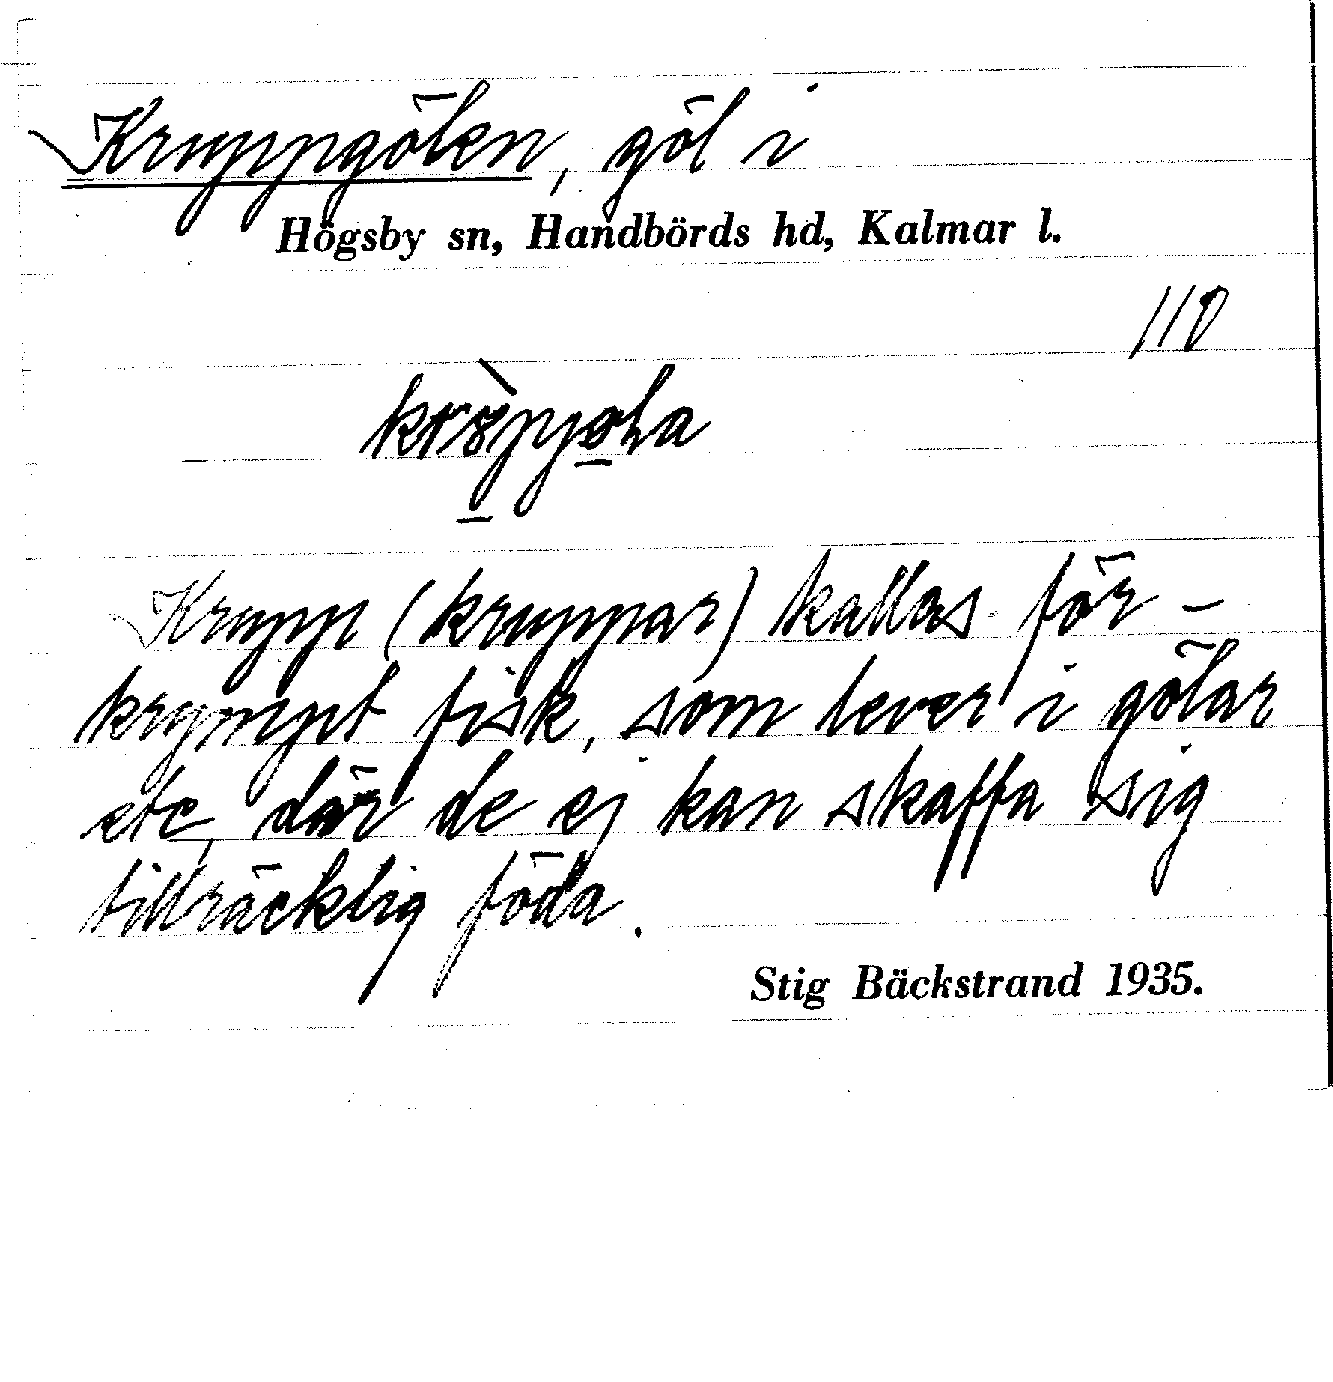 Kruppgölen, göl i
Högsby sn, Handbörds hd, Kalmar l.
110
Krupp (kruppar) kallas för-
krympt fisk, som lever i gölar
etc, där de ej kan skaffa sig
tillräcklig föda.
Stig Bäckstrand 1935.